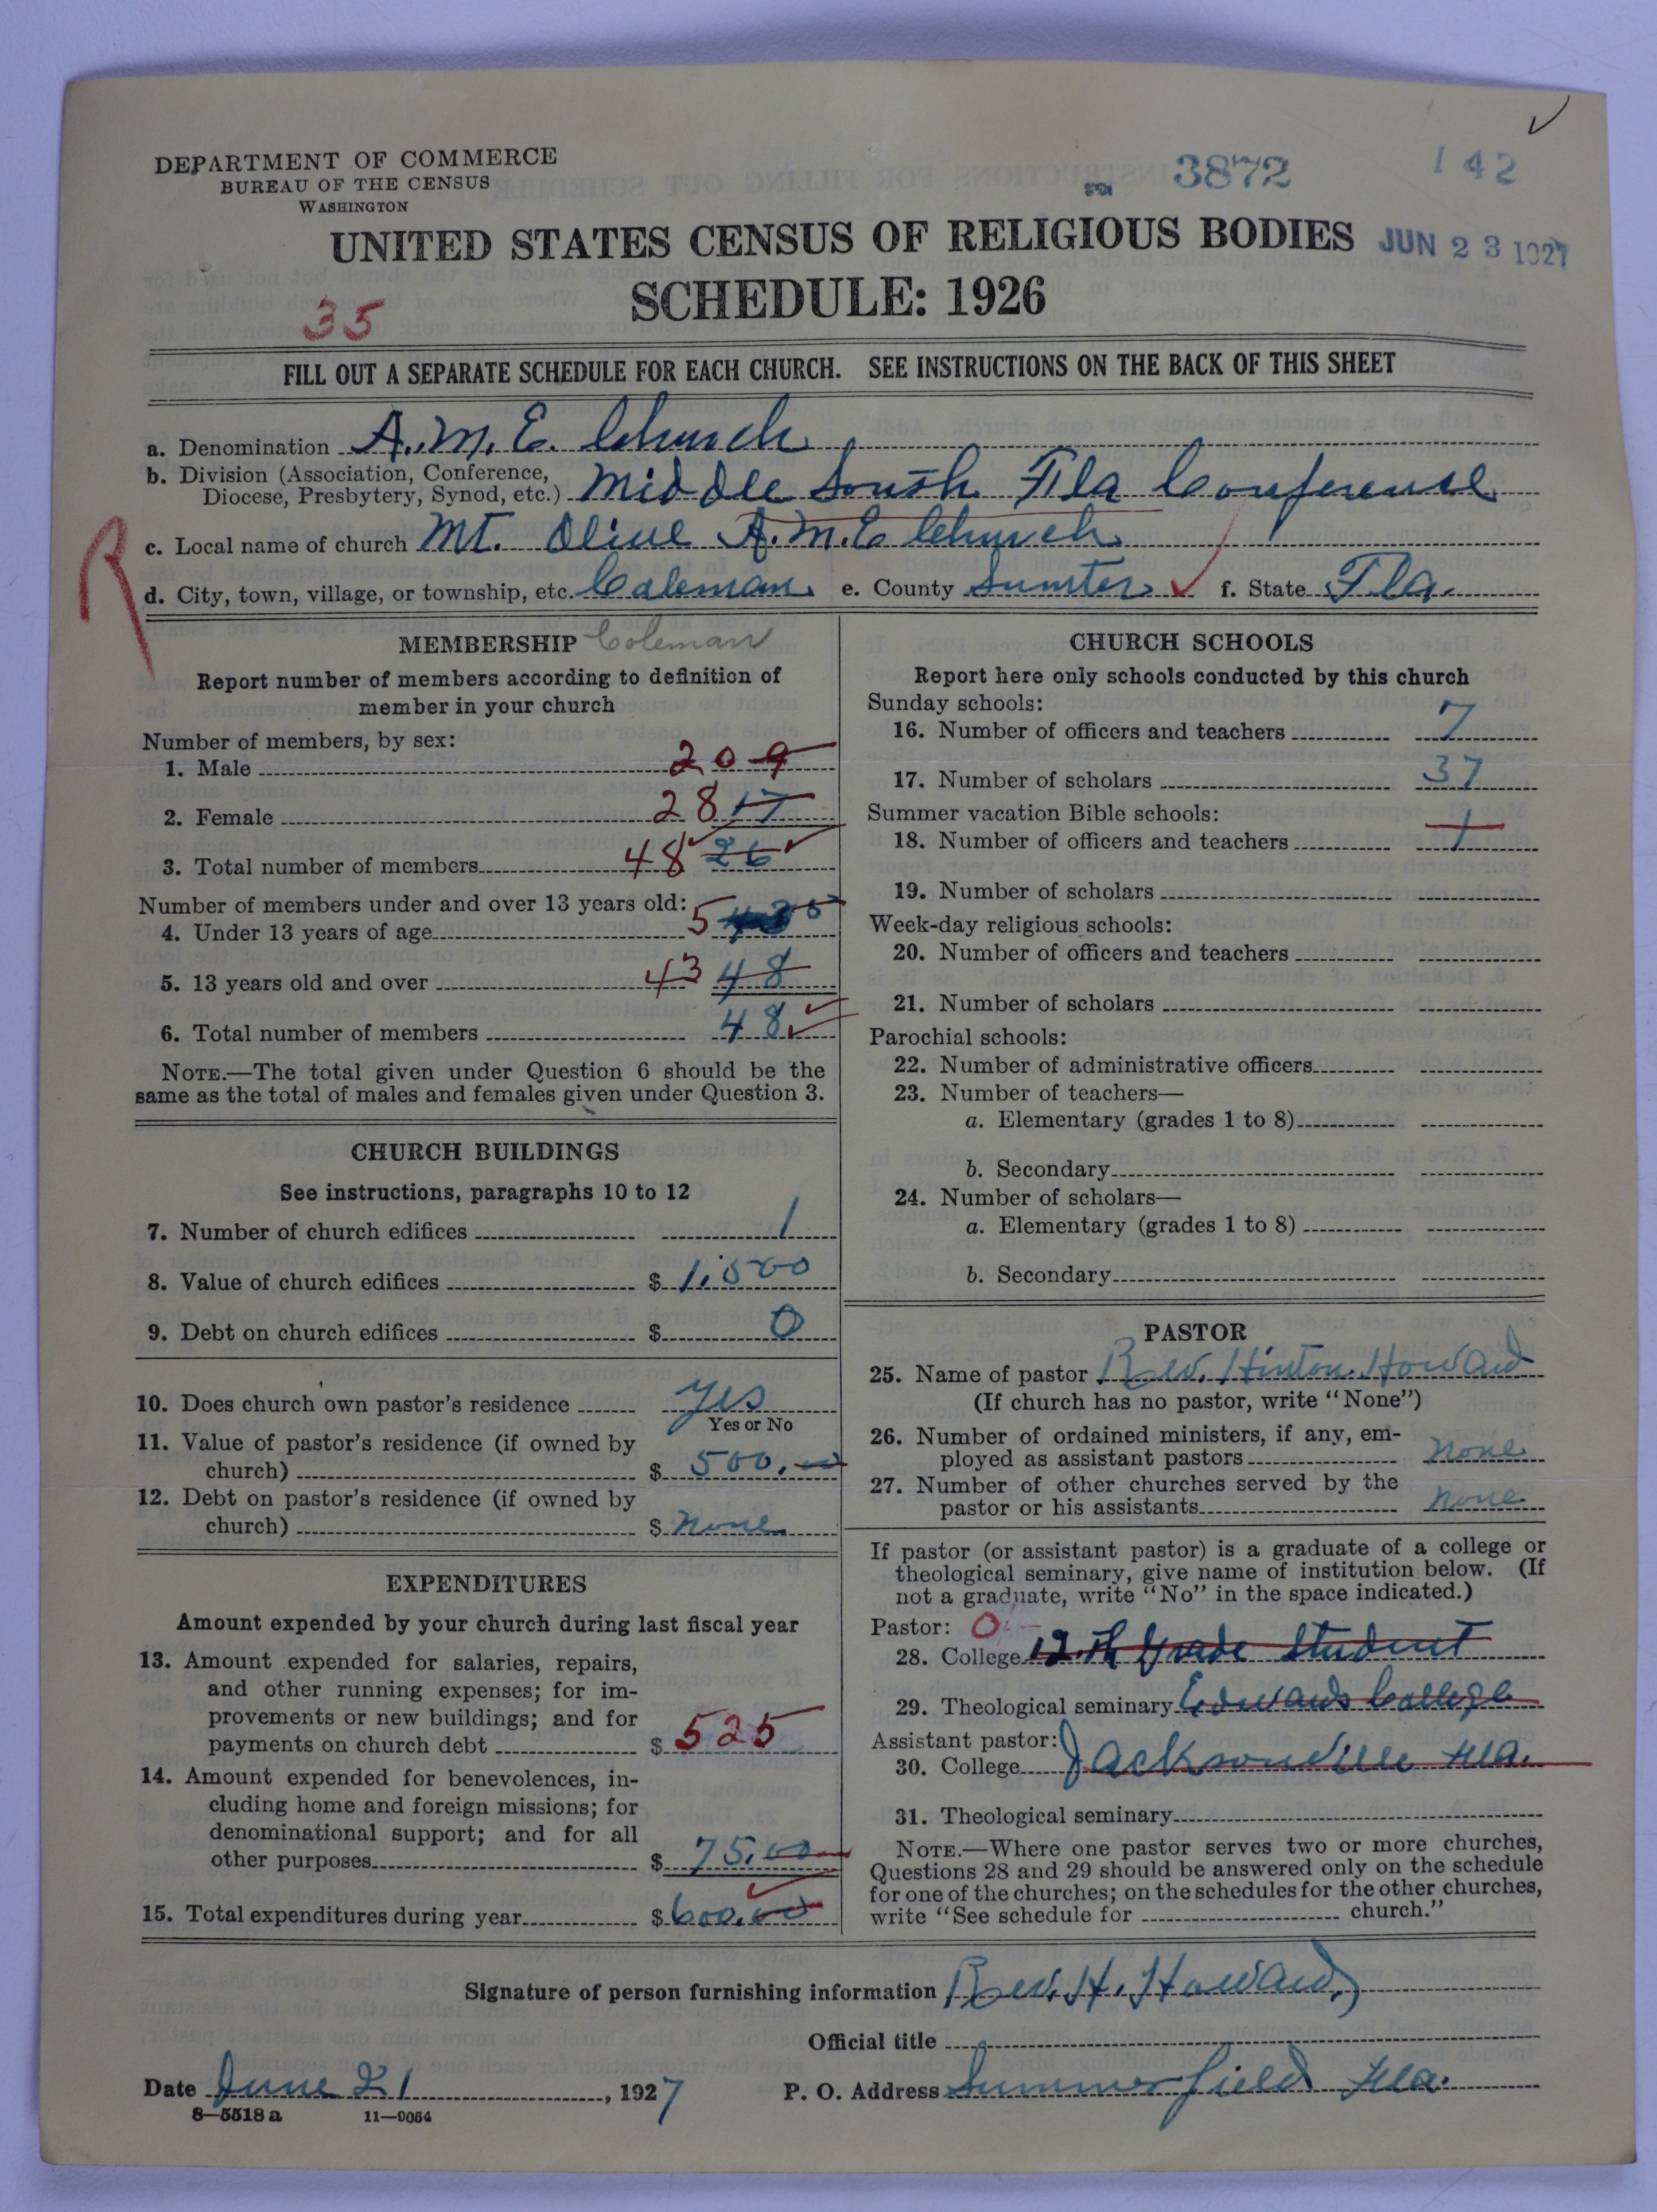 DEPARTMENT OF COMMERCE
BUREAU OF THE CENSUS
WASHINGTON
3872
142
UNITED STATES CENSUS OF RELIGIOUS BODIES
JUN 23 1927
SCHEDULE: 1926
35
FILL OUT A SEPARATE SCHEDULE FOR EACH CHURCH. SEE INSTRUCTIONS ON THE BACK OF THIS SHEET
a. Denomination A.M.E. Church
b. Division (Association, Conference,
Diocese, Presbytery, Synod, etc.) Middle South Fla Conference
R
c. Local name of church Mt. Olive A.M.E Church
d. City, town, village, or township, etc. Coleman e. County Sumter f. State Fla.
MEMBERSHIP Coleman
Report number of members according to definition of
member in your church
Number of members, by sex:
1. Male 20 9
2. Female 28 17
3. Total number of members 48 26
Number of members under and over 13 years old:
4. Under 13 years of age 5
5. 13 years old and over 43 48
6. Total number of members 48
NOTE.—The total given under Question 6 should be the
same as the total of males and females given under Question 3.
CHURCH BUILDINGS
See instructions, paragraphs 10 to 12
7. Number of church edifices 1
8. Value of church edifices $ 1,500
9. Debt on church edifices $ 0
10. Does church own pastor's residence yes
Yes or No
11. Value of pastor's residence (if owned by
church) $ 500.00
12. Debt on pastor's residence (if owned by
church) $ none
EXPENDITURES
Amount expended by your church during last fiscal year
13. Amount expended for salaries, repairs,
and other running expenses; for im-
provements or new buildings; and for
payments on church debt $ 525
14. Amount expended for benevolences, in-
cluding home and foreign missions; for
denominational support; and for all
other purposes $ 75.00
15. Total expenditures during year $ 600.00
CHURCH SCHOOLS
Report here only schools conducted by this church
Sunday schools:
16. Number of officers and teachers 7
17. Number of scholars 37
Summer vacation Bible schools:
18. Number of officers and teachers 1
19. Number of scholars
Week-day religious schools:
20. Number of officers and teachers
21. Number of scholars
Parochial schools:
22. Number of administrative officers
23. Number of teachers—
a. Elementary (grades 1 to 8)
b. Secondary
24. Number of scholars—
a. Elementary (grades 1 to 8)
b. Secondary
PASTOR
25. Name of pastor Rev. Hinton Howard
(If church has no pastor, write "None")
26. Number of ordained ministers, if any, em-
ployed as assistant pastors none
27. Number of other churches served by the
pastor or his assistants none
If pastor (or assistant pastor) is a graduate of a college or
theological seminary, give name of institution below. (If
not a graduate, write "No" in the space indicated.)
Pastor: 0
28. College 12.th Grade Student
29. Theological seminary Edwards College
Assistant pastor:
30. College Jacksonville Fla.
31. Theological seminary
NOTE.—Where one pastor serves two or more churches,
Questions 28 and 29 should be answered only on the schedule
for one of the churches; on the schedules for the other churches,
write "See schedule for church."
Signature of person furnishing information Rev. H. Howard
Official title
Date June 21, 1927 P. O. Address Summerfield Fla.
8—5518 a 11—9054